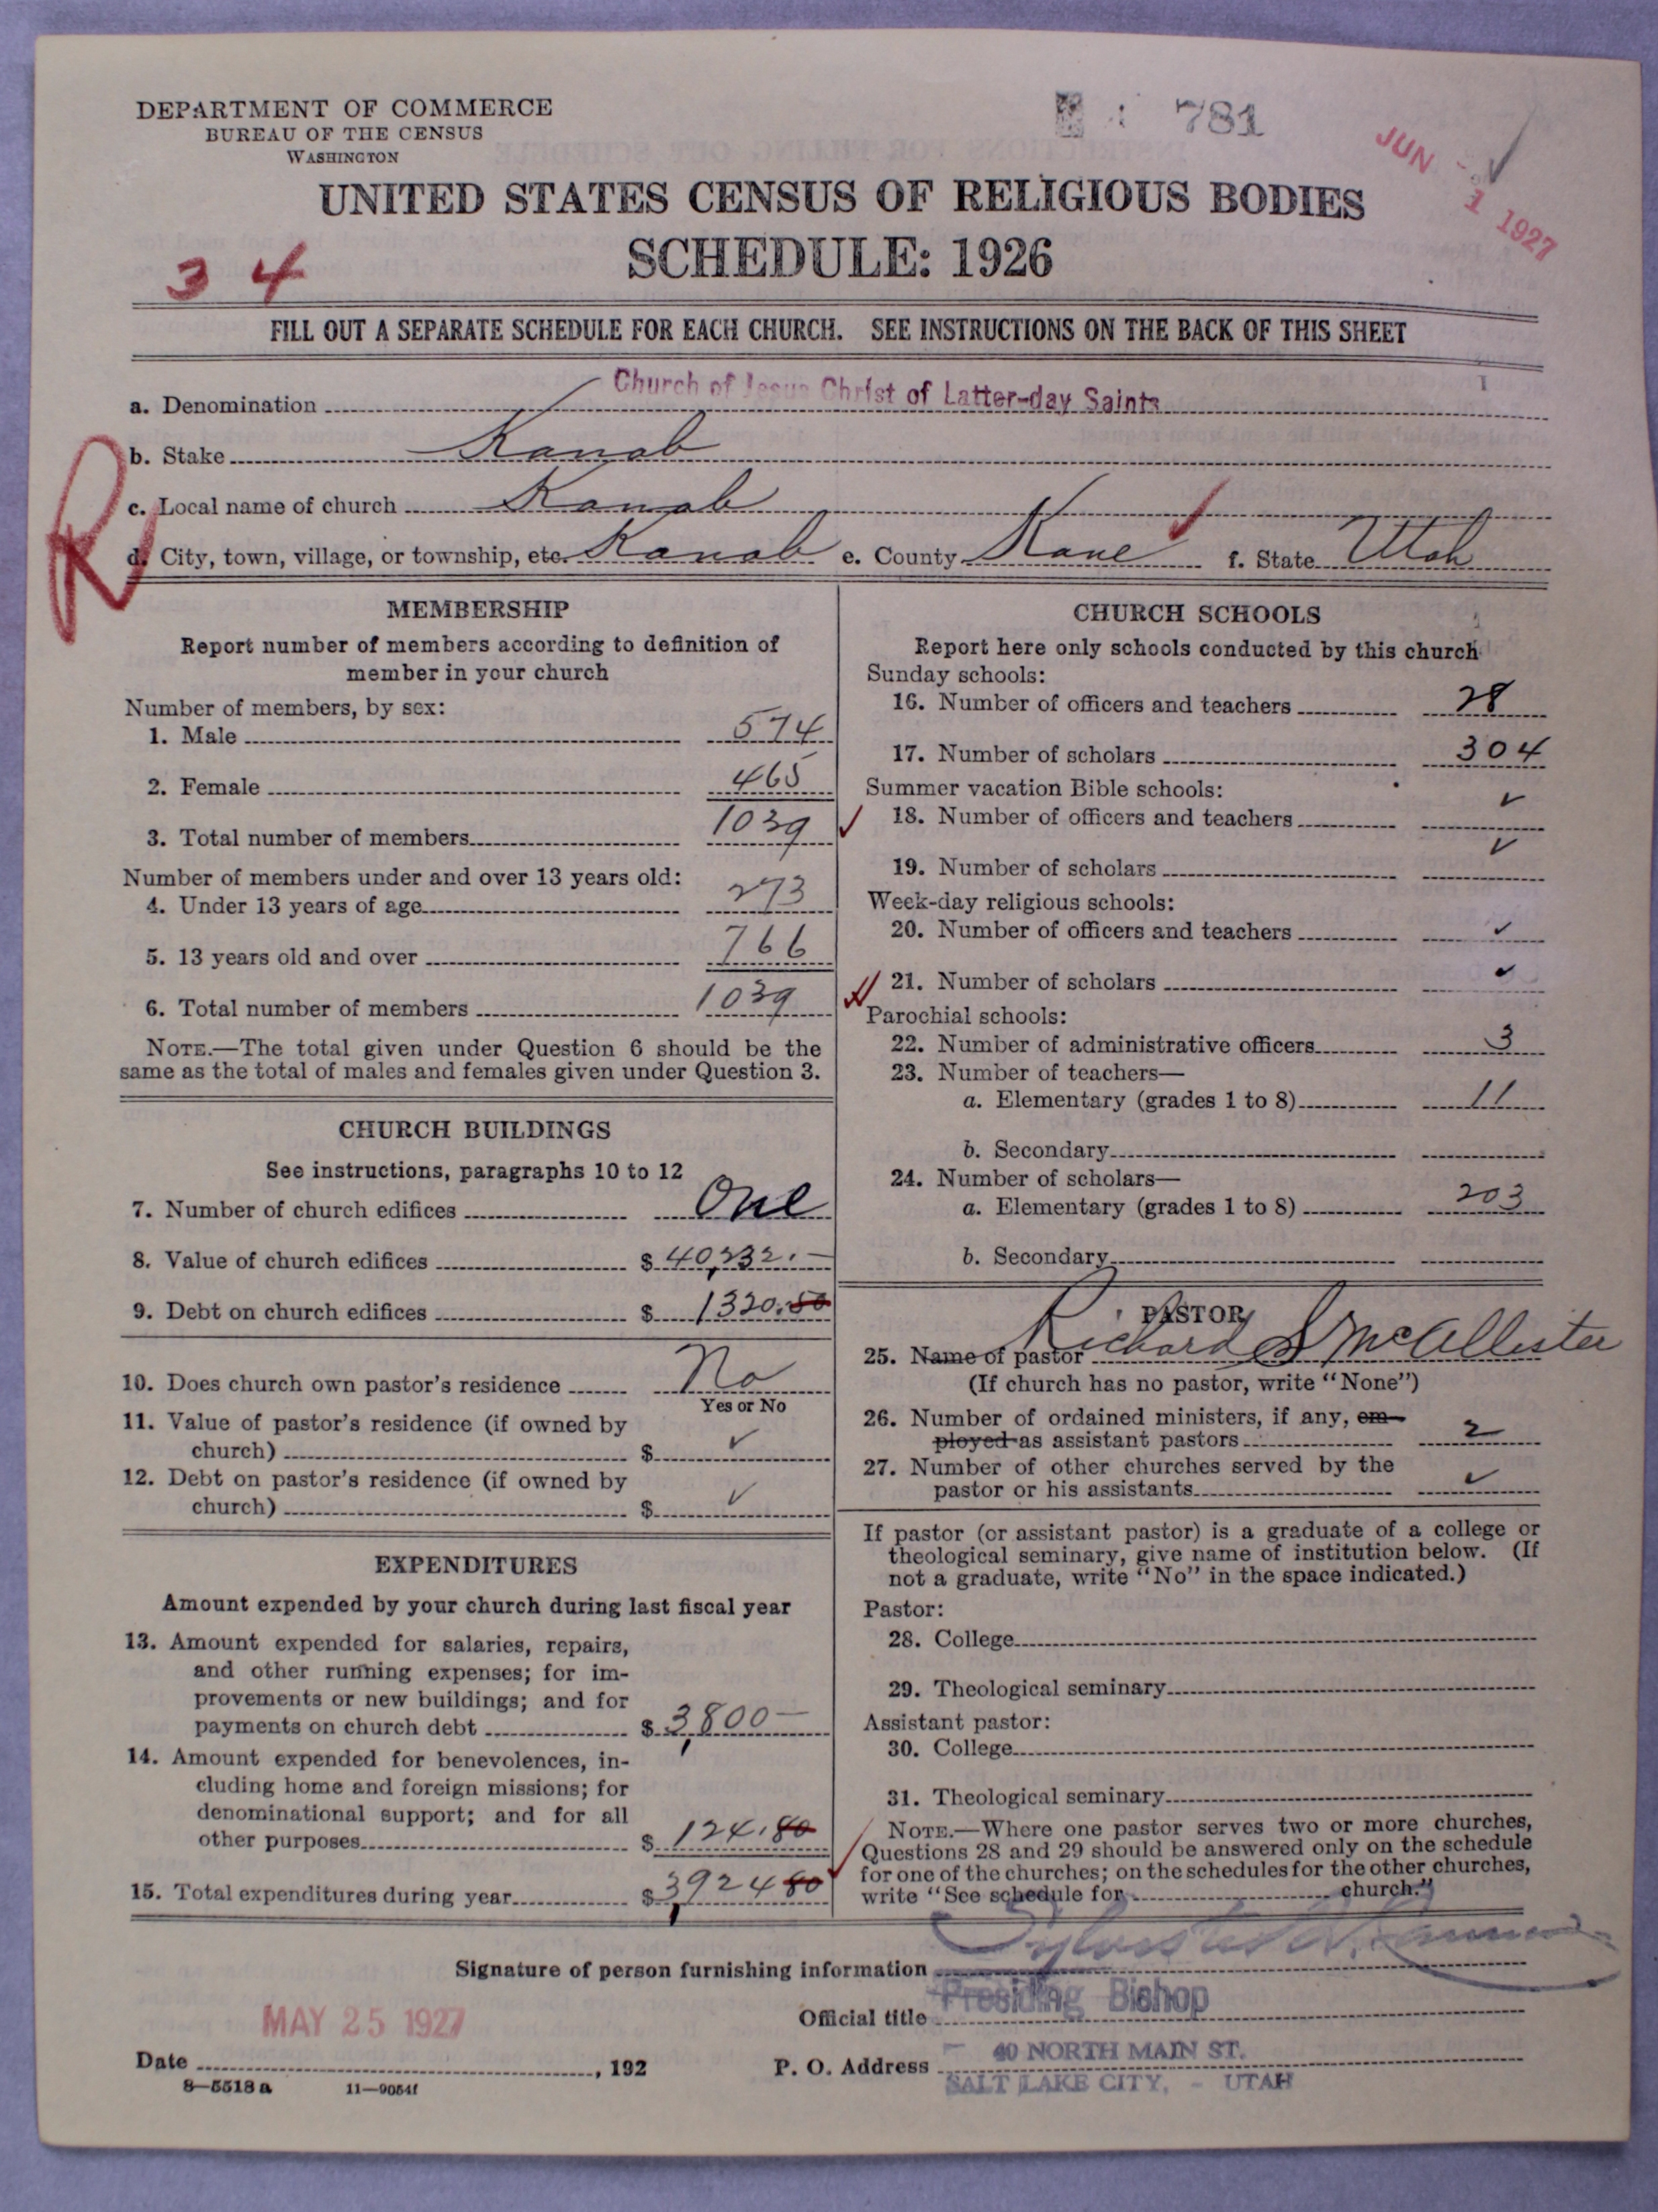 DEPARTMENT OF COMMERCE
BUREAU OF THE CENSUS
WASHINGTON
781
JUN - 1 1927
UNITED STATES CENSUS OF RELIGIOUS BODIES
SCHEDULE: 1926
3 4
FILL OUT A SEPARATE SCHEDULE FOR EACH CHURCH. SEE INSTRUCTIONS ON THE BACK OF THIS SHEET
a. Denomination Church of Jesus Christ of Latter-day Saints
b. Stake Kanab
c. Local name of church Kanab
R
d. City, town, village, or township, etc. Kanab e. County Kane ✓ f. State Utah
MEMBERSHIP
Report number of members according to definition of
member in your church
Number of members, by sex:
1. Male 574
2. Female 465
3. Total number of members 1039 ✓
Number of members under and over 13 years old:
4. Under 13 years of age 273
5. 13 years old and over 766
6. Total number of members 1039
NOTE.—The total given under Question 6 should be the
same as the total of males and females given under Question 3.
CHURCH BUILDINGS
See instructions, paragraphs 10 to 12
7. Number of church edifices One
8. Value of church edifices $ 40,232.—
9. Debt on church edifices $ 1320.50
10. Does church own pastor's residence No
Yes or No
11. Value of pastor's residence (if owned by
church) $ ✓
12. Debt on pastor's residence (if owned by
church) $ ✓
EXPENDITURES
Amount expended by your church during last fiscal year
13. Amount expended for salaries, repairs,
and other running expenses; for im-
provements or new buildings; and for
payments on church debt $ 3,800—
14. Amount expended for benevolences, in-
cluding home and foreign missions; for
denominational support; and for all
other purposes $ 124.80
15. Total expenditures during year $ 3,924 80 ✓
CHURCH SCHOOLS
Report here only schools conducted by this church
Sunday schools:
16. Number of officers and teachers 28
17. Number of scholars 304
Summer vacation Bible schools:
18. Number of officers and teachers ✓
19. Number of scholars ✓
Week-day religious schools:
20. Number of officers and teachers ✓
21. Number of scholars ✓
Parochial schools:
22. Number of administrative officers 3
23. Number of teachers—
a. Elementary (grades 1 to 8) 11
b. Secondary
24. Number of scholars—
a. Elementary (grades 1 to 8) 203
b. Secondary
PASTOR
25. Name of pastor Richard S McAllister
(If church has no pastor, write "None")
26. Number of ordained ministers, if any, em-
ployed as assistant pastors 2
27. Number of other churches served by the
pastor or his assistants ✓
If pastor (or assistant pastor) is a graduate of a college or
theological seminary, give name of institution below. (If
not a graduate, write "No" in the space indicated.)
Pastor:
28. College
29. Theological seminary
Assistant pastor:
30. College
31. Theological seminary
NOTE.—Where one pastor serves two or more churches,
Questions 28 and 29 should be answered only on the schedule
for one of the churches; on the schedules for the other churches,
write "See schedule for church."
Signature of person furnishing information Sylvester Q. Cannon
Official title Presiding Bishop
MAY 25 1927
Date , 192
P. O. Address 40 NORTH MAIN ST.
SALT LAKE CITY, - UTAH
8—5518 a 11—9054f